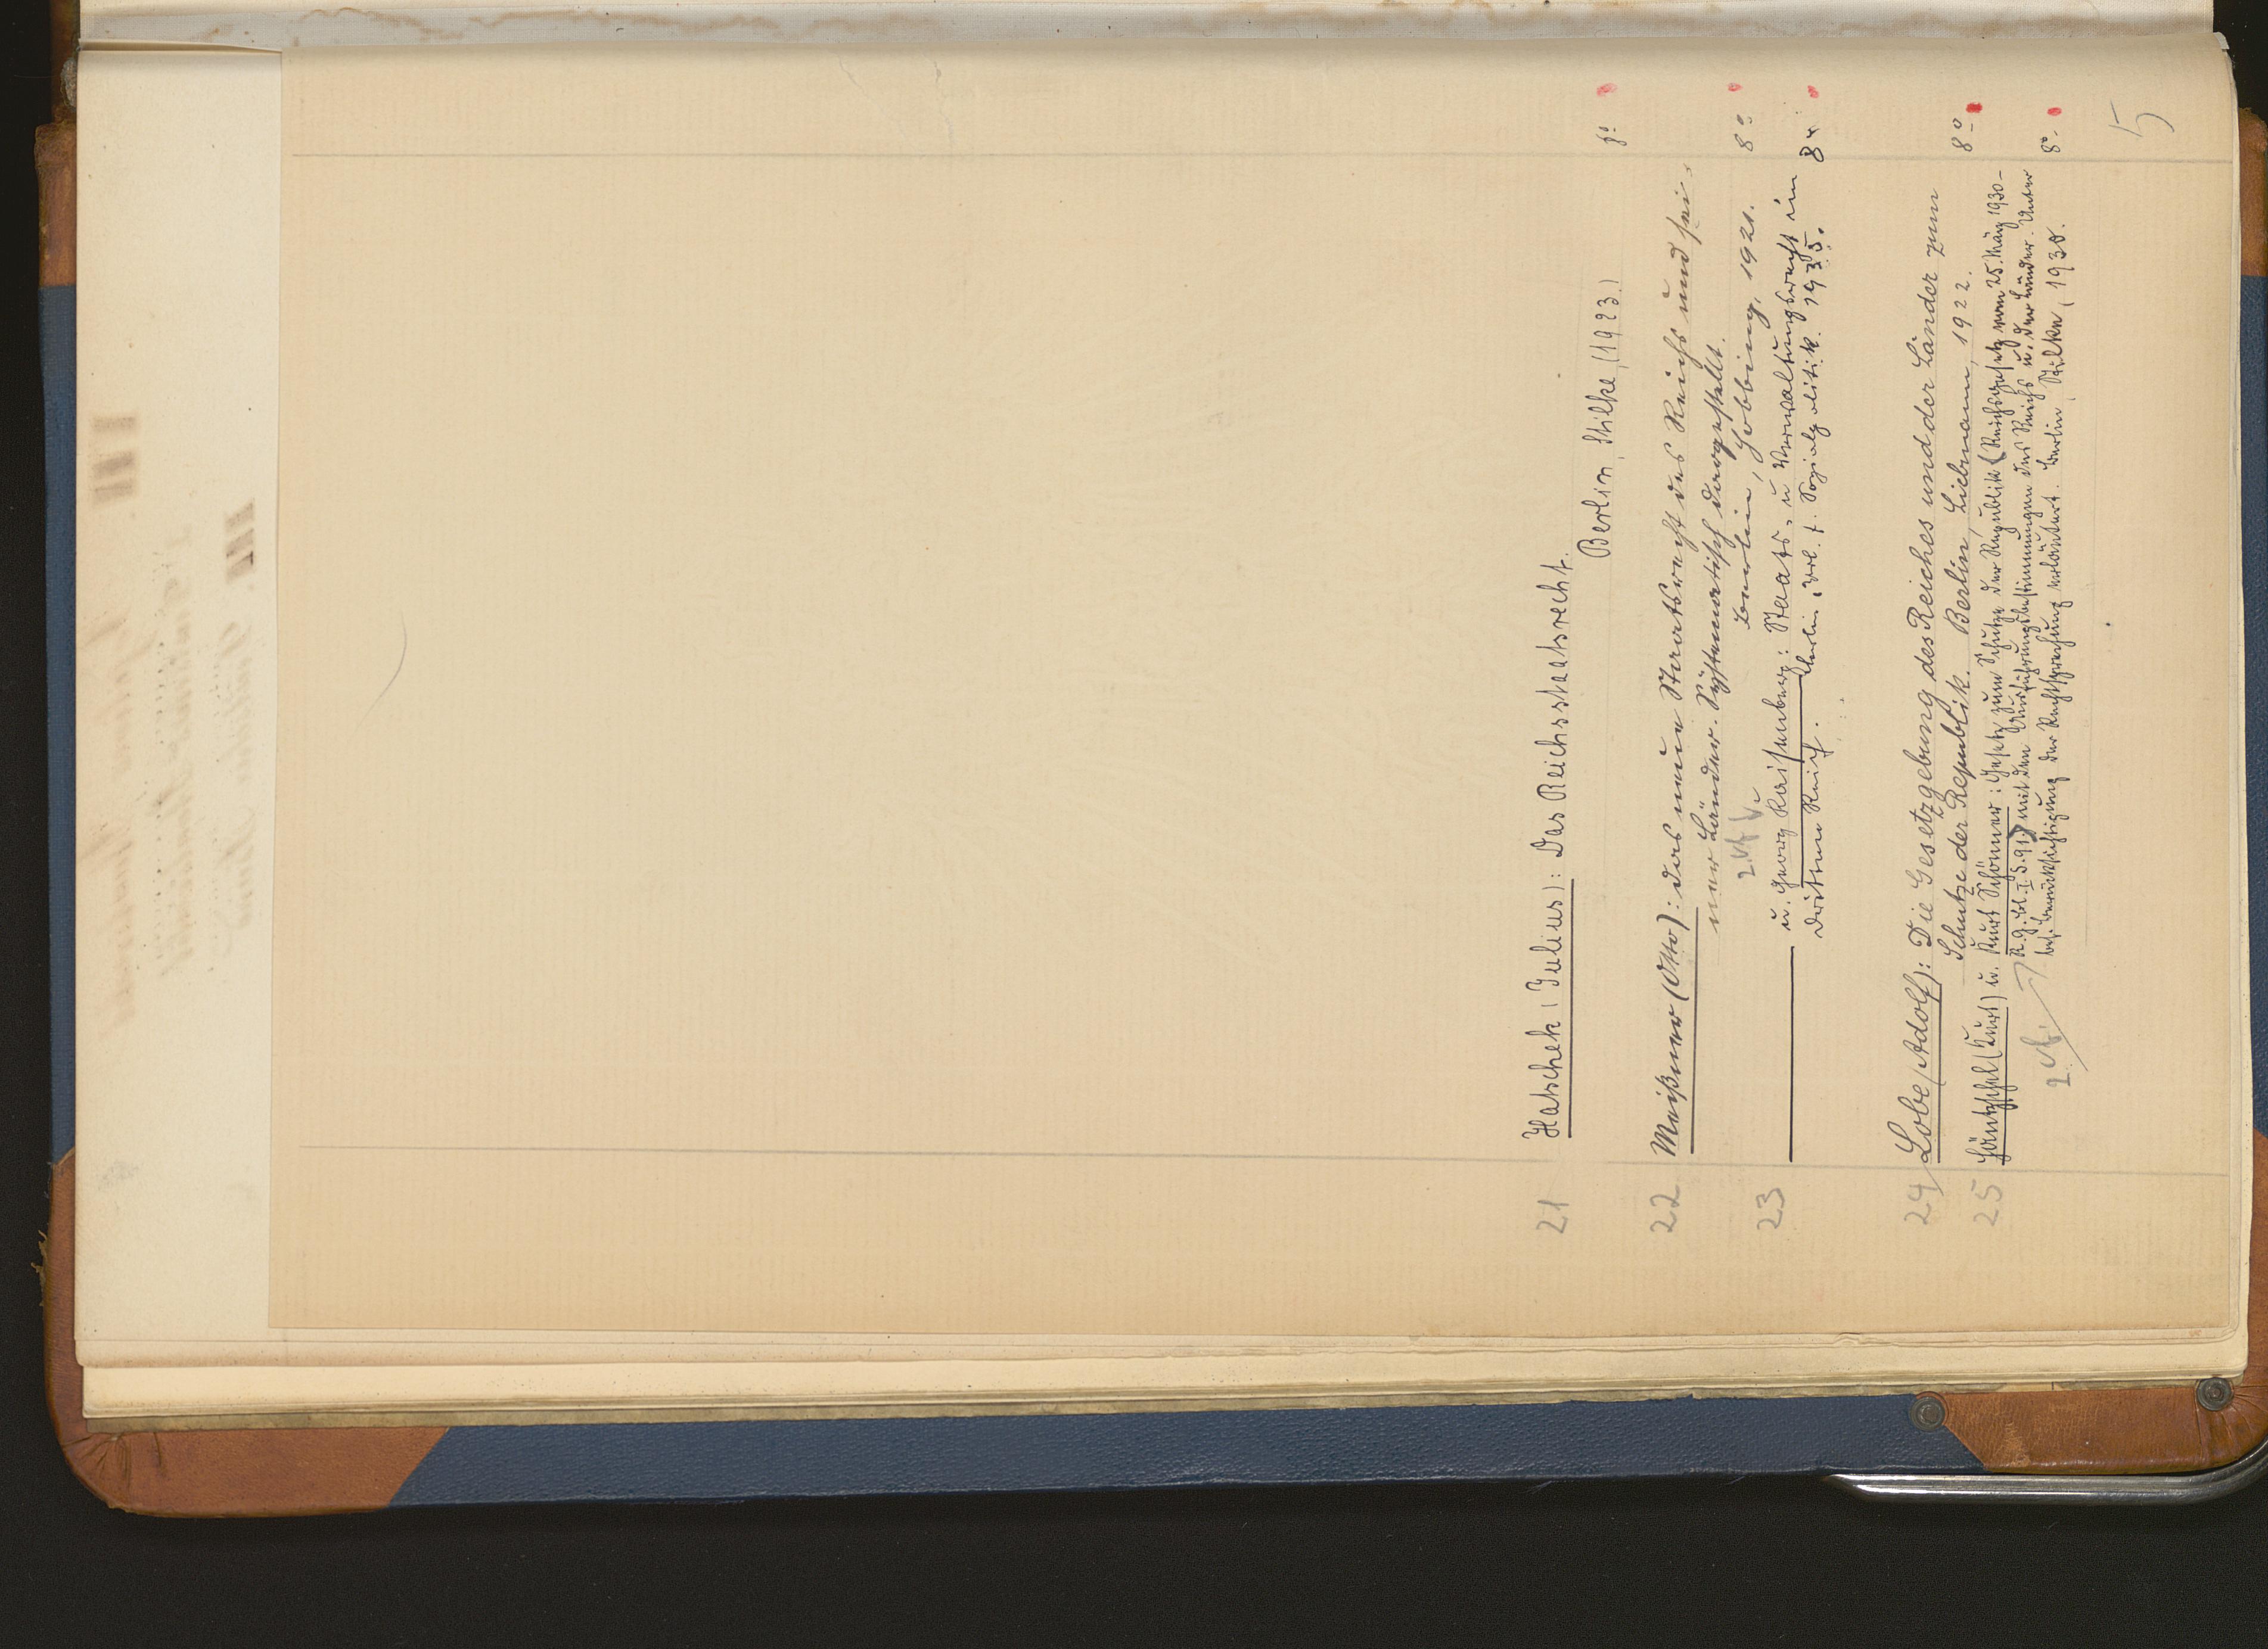 21 Hatschek (Julius): Das Reichsstaatsrecht.
Berlin, Stilke, (1923.) 8°
22 Meißner (Otto): Das neue Staatsrecht des Reichs und sei-
ner Länder. Systematisch dargestellt.
Berlin, Hobbing, 1921. 8°
23 ——— u. Georg Kaisenberg: Staats- u Verwaltungsrecht im
Dritten Reich. Berlin, Verl. f. Sozialpolitik. 1935. 8°
24 Lobe (Adolf): Die Gesetzgebung des Reiches und der Länder zum
Schutze der Republik. Berlin, Liebmann, 1922. 8°
25 Häntzschel (Kurt) u. Kurt Schönner: Gesetz zum Schutze der Republik (Reichsgesetz vom 25. März 1930 -
R.G.Bl. I S. 91) mit den Ausführungsbestimmungen des Reichs u. der Länder. Unter
bes. Berücksichtigung der Rechtsprechung erläutert. Berlin, Stilke, 1930. 8°
5